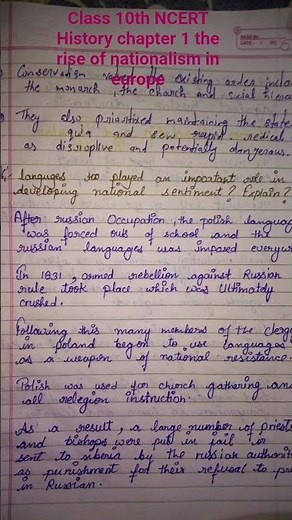 Class 10th NCERT
History chapter 1 the
rise of nationalism in
europe
Conservatism existing order
the monarch, the church and social hiera
They also prioritized maintaining the state
and radical
as disruptive and potentially dangerous.
languges played an impoatant role in
developing national sentiment? Explain?
After russian Occupation, the polish languag
was forced out of school and the
russian languages was imposed everyw
In 1831, armed rebellion against Russian
rule took place which was Ultimately
crushed.
Following this many members of the clerg
in poland began to use languages
as a weapon of national resistance.
Polish was used for church gathering and
all relegion instruction.
As a result, a large number of priests
and bishops were put in jail or
sent to siberia by the russian authorit
as punishment for their refusal to pr
in Russian.